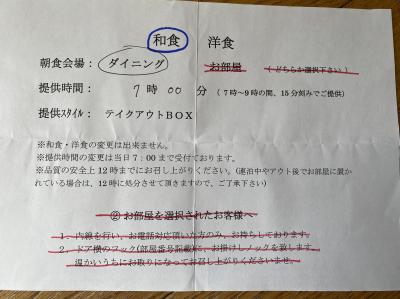 和食 洋食
朝食会場： ダイニング お部屋 （どちらか選択下さい）
提供時間： 7 時 00 分 （7時～9時の間、15分刻みでご提供）
提供ｽﾀｲﾙ： テイクアウトBOX
※和食・洋食の変更は出来ません。
※提供時間の変更は当日7：00まで受付ております。
※品質の安全上12時までにお召し上がりください。(連泊中やアウト後でお部屋に置か
れている場合は、12時に処分させて頂きますので、ご了承下さい)
② お部屋を選択されたお客様へ
1、内線を行い、お電話対応頂いた方のみ、お持ちしております。
2、ドア横のフック(部屋番号記載)に、お掛けしノックを致します。
温かいうちにお取りになってお召し上がりくださいませ。